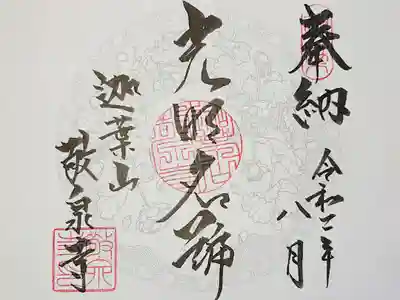 奉納
令和二年
八月
光明名號
迦葉山
敬泉寺